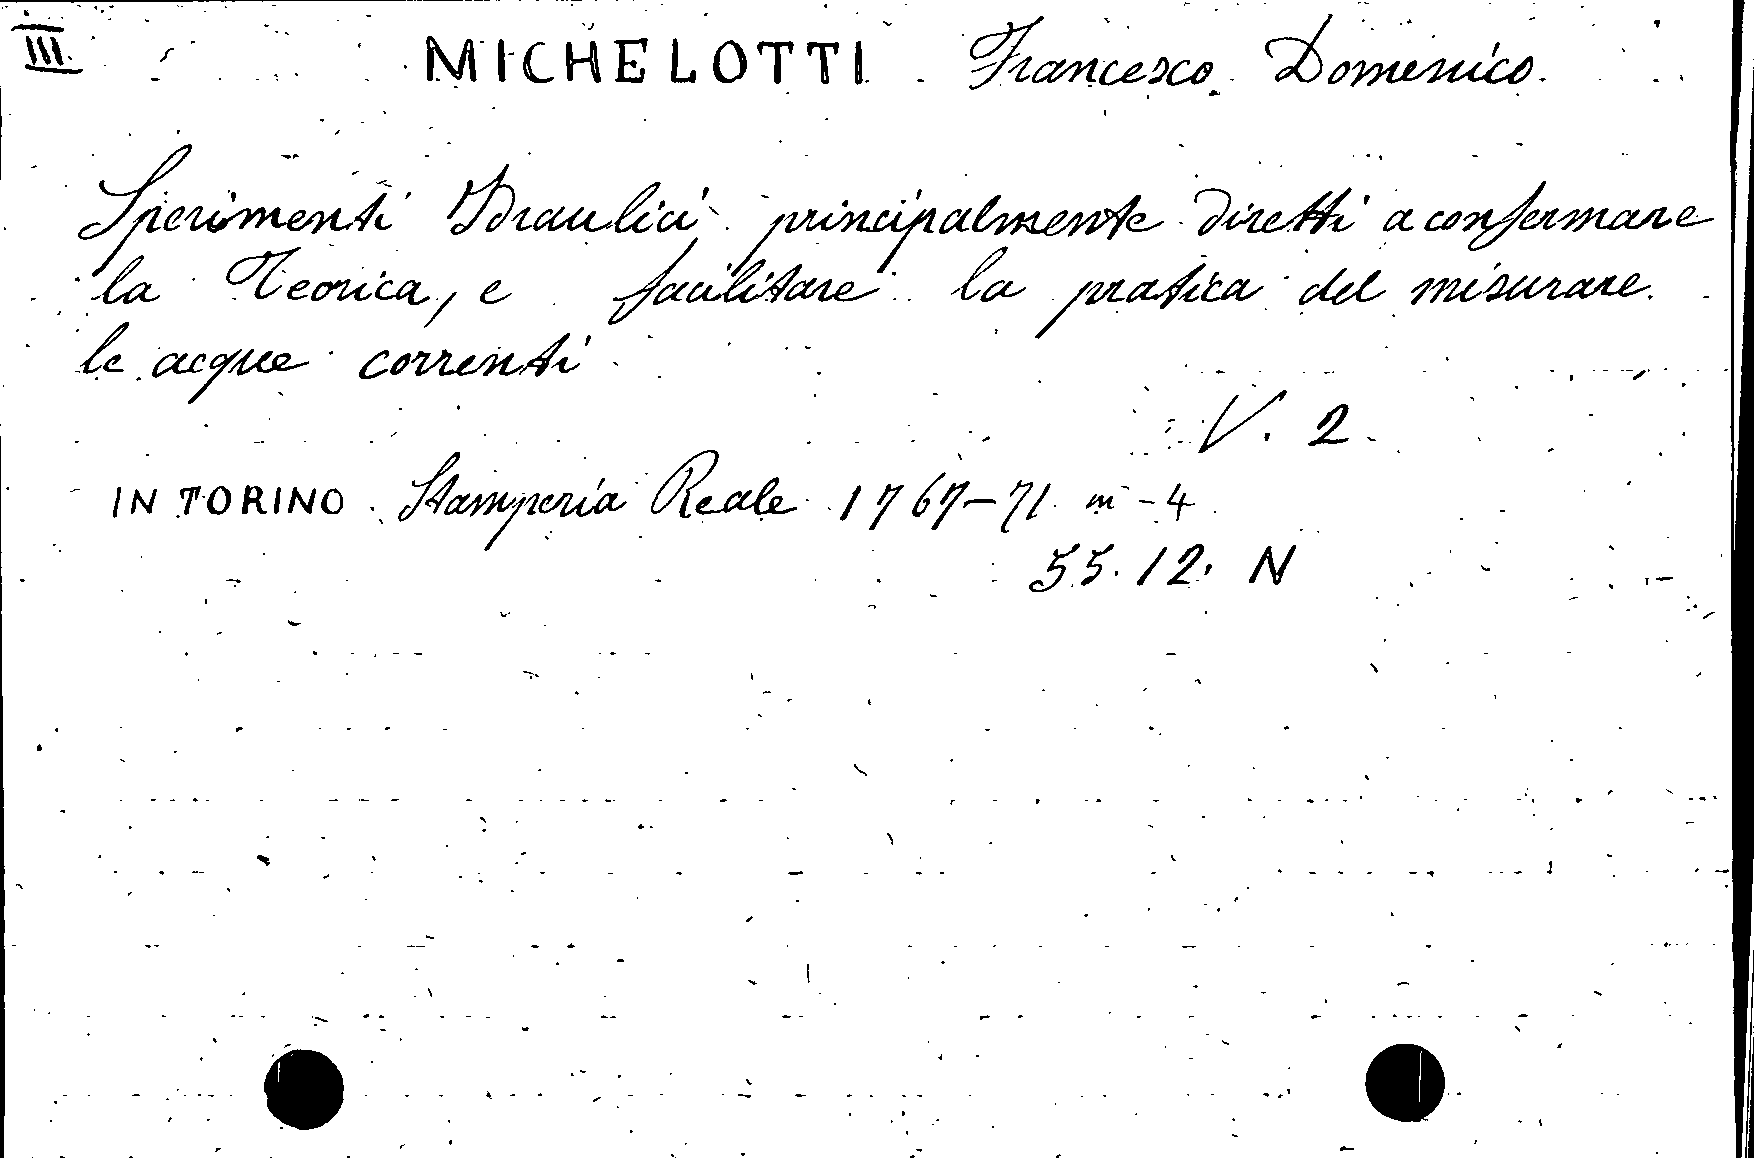 III.
MICHELOTTI Francesco Domenico.
Sperimenti Idraulici principalmente diretti a confermare
la Teorica, e facilitare la pratica del misurare
le acque correnti
V. 2
IN TORINO Stamperia Reale 1767-71 in-4
55.12. N